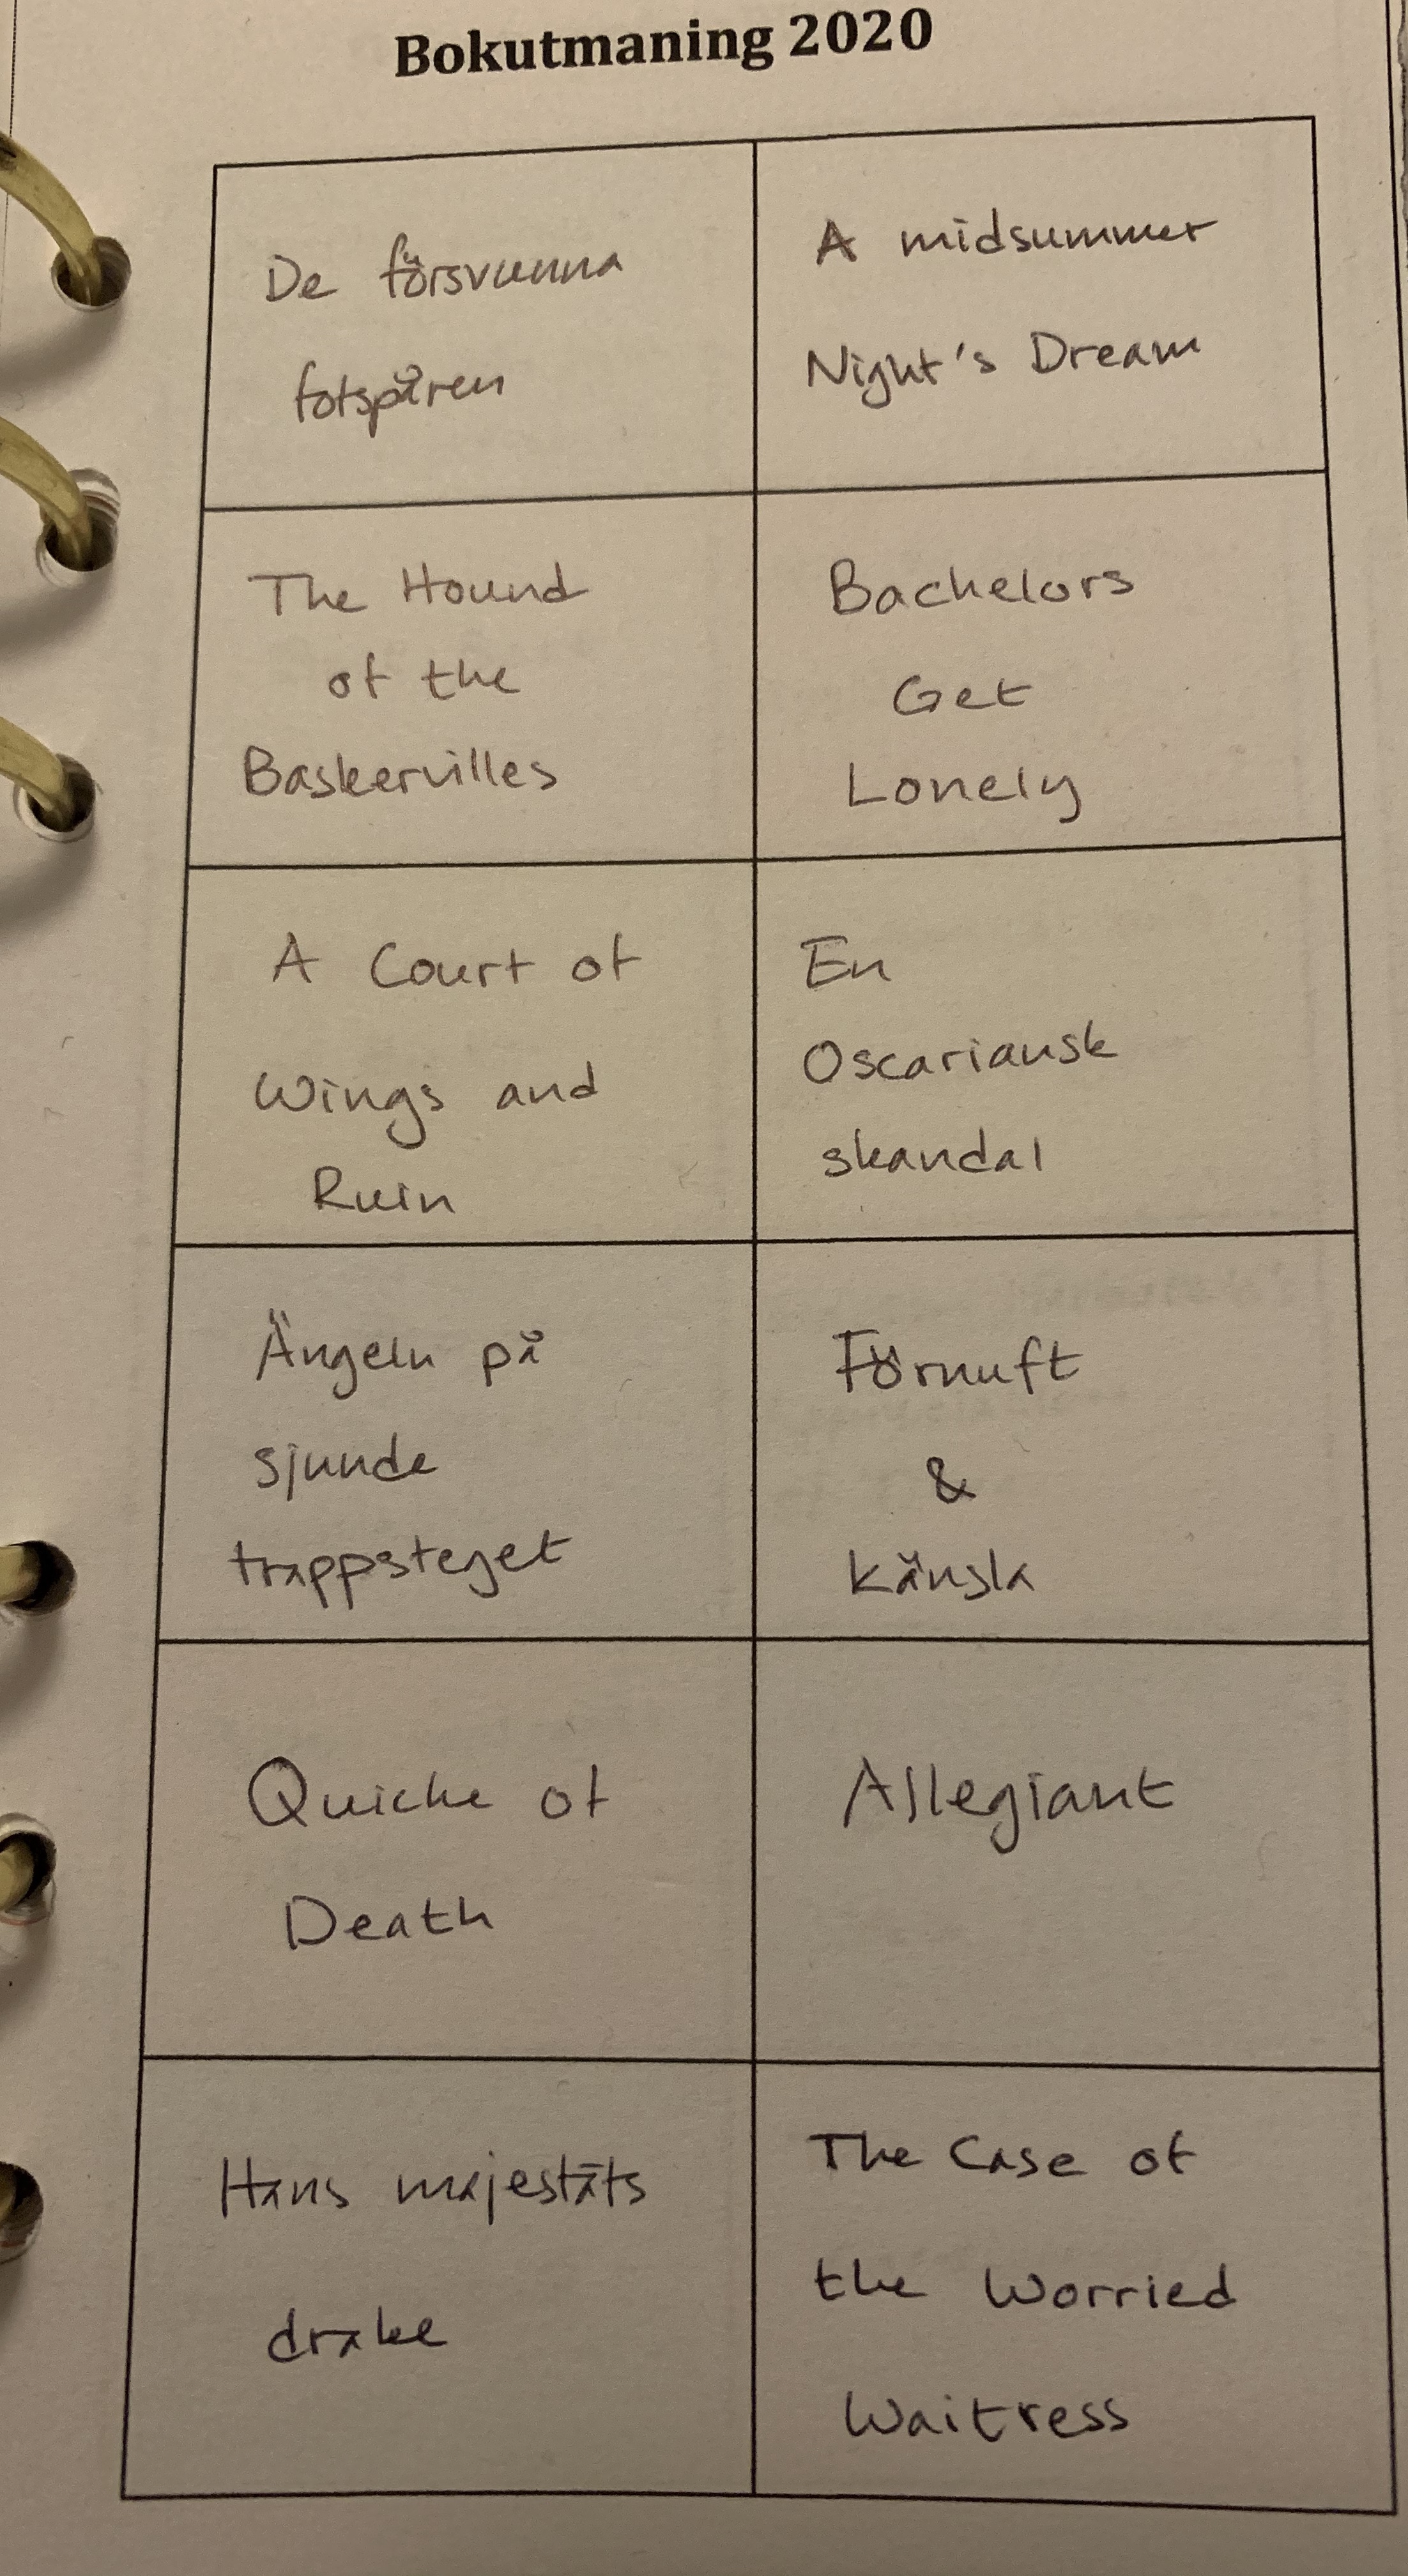 Bokutmaning 2020
De försvunna
fotspåren
A midsummer
Night's Dream
The Hound
of the
Baskervilles
Bachelors
Get
Lonely
A Court of
Wings and
Ruin
En
Oscariansk
skandal
Ängeln på
sjunde
trappsteget
Förnuft
&
känsla
Quiche of
Death
Allegiant
Hans majestäts
drake
The Case of
the Worried
Waitress